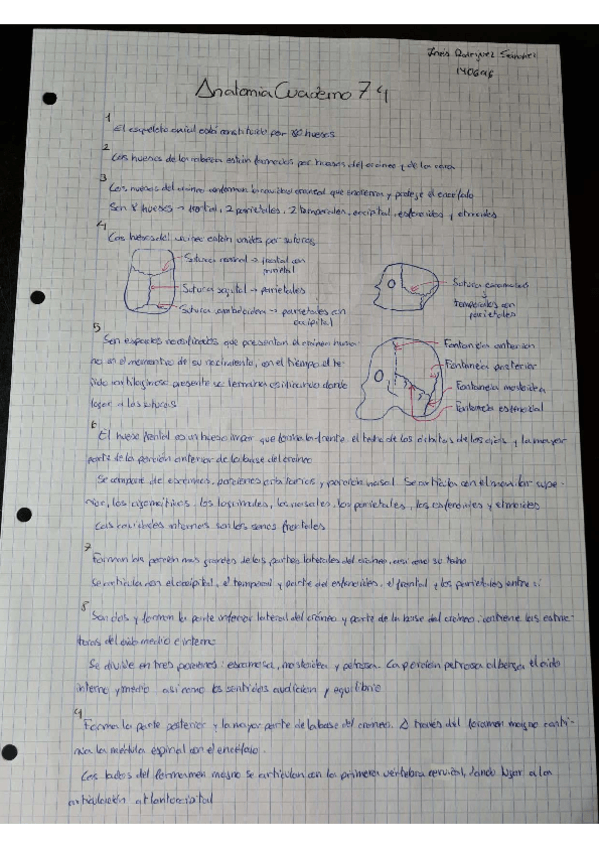 Rodriguez Sanchez
Anatomia Cuaderno 7
1
El esqueleto axial está constituido por 80 huesos
2
Los huesos de la cabeza están formados por huesos del cráneo y de la cara
3
Los huesos del cráneo conforman la cavidad craneal que encierra y protege el encéfalo
Son 8 huesos → frontal, 2 parietales, 2 temporales, occipital, esfenoides y etmoides
4
Los huesos del cráneo están unidos por suturas
Sutura coronal → frontal con parietal
Sutura sagital → parietales
Sutura → parietales con occipital
Sutura escamosa
temporales con parietales
5
Son espacios que presentan el cráneo humano
en el momento de su nacimiento, con el tiempo el tejido
cartilaginoso presente se termina osificando dando
lugar a las suturas
Fontanela anterior
Fontanela posterior
Fontanela mastoidea
Fontanela esfenoidal
6
El hueso frontal es un hueso impar que forma la frente, el techo de las órbitas de los ojos y la mayor
parte de la porción anterior de la base del cráneo
Se compone de escamas, porciones orbitarias y porción nasal. Se articula con el maxilar superior,
los cigomáticos, los lagrimales, los nasales, los parietales, los esfenoides y etmoides
Las cavidades internas son los senos frontales
7
Forman la porción mas grandes de las partes laterales del cráneo, así como su techo
Se articula con el occipital, el temporal y parte del esfenoides, el frontal y los parietales entre si
8
Son dos y forman la parte inferior lateral del cráneo y parte de la base del cráneo, contiene las estructuras
del oido medio e interno
Se divide en tres porciones: escamosa, mastoidea y petrosa. La porcion petrosa alberga el oido
interno y medio así como los sentidos audicion y equilibrio
9
Forma la parte posterior y la mayor parte de la base del craneo. A través del foramen magno continua
la médula espinal con el encéfalo.
Los lados del foramen magno se articulan con la primera vertebra cervical, dando lugar a la
articulación atlantooccipital